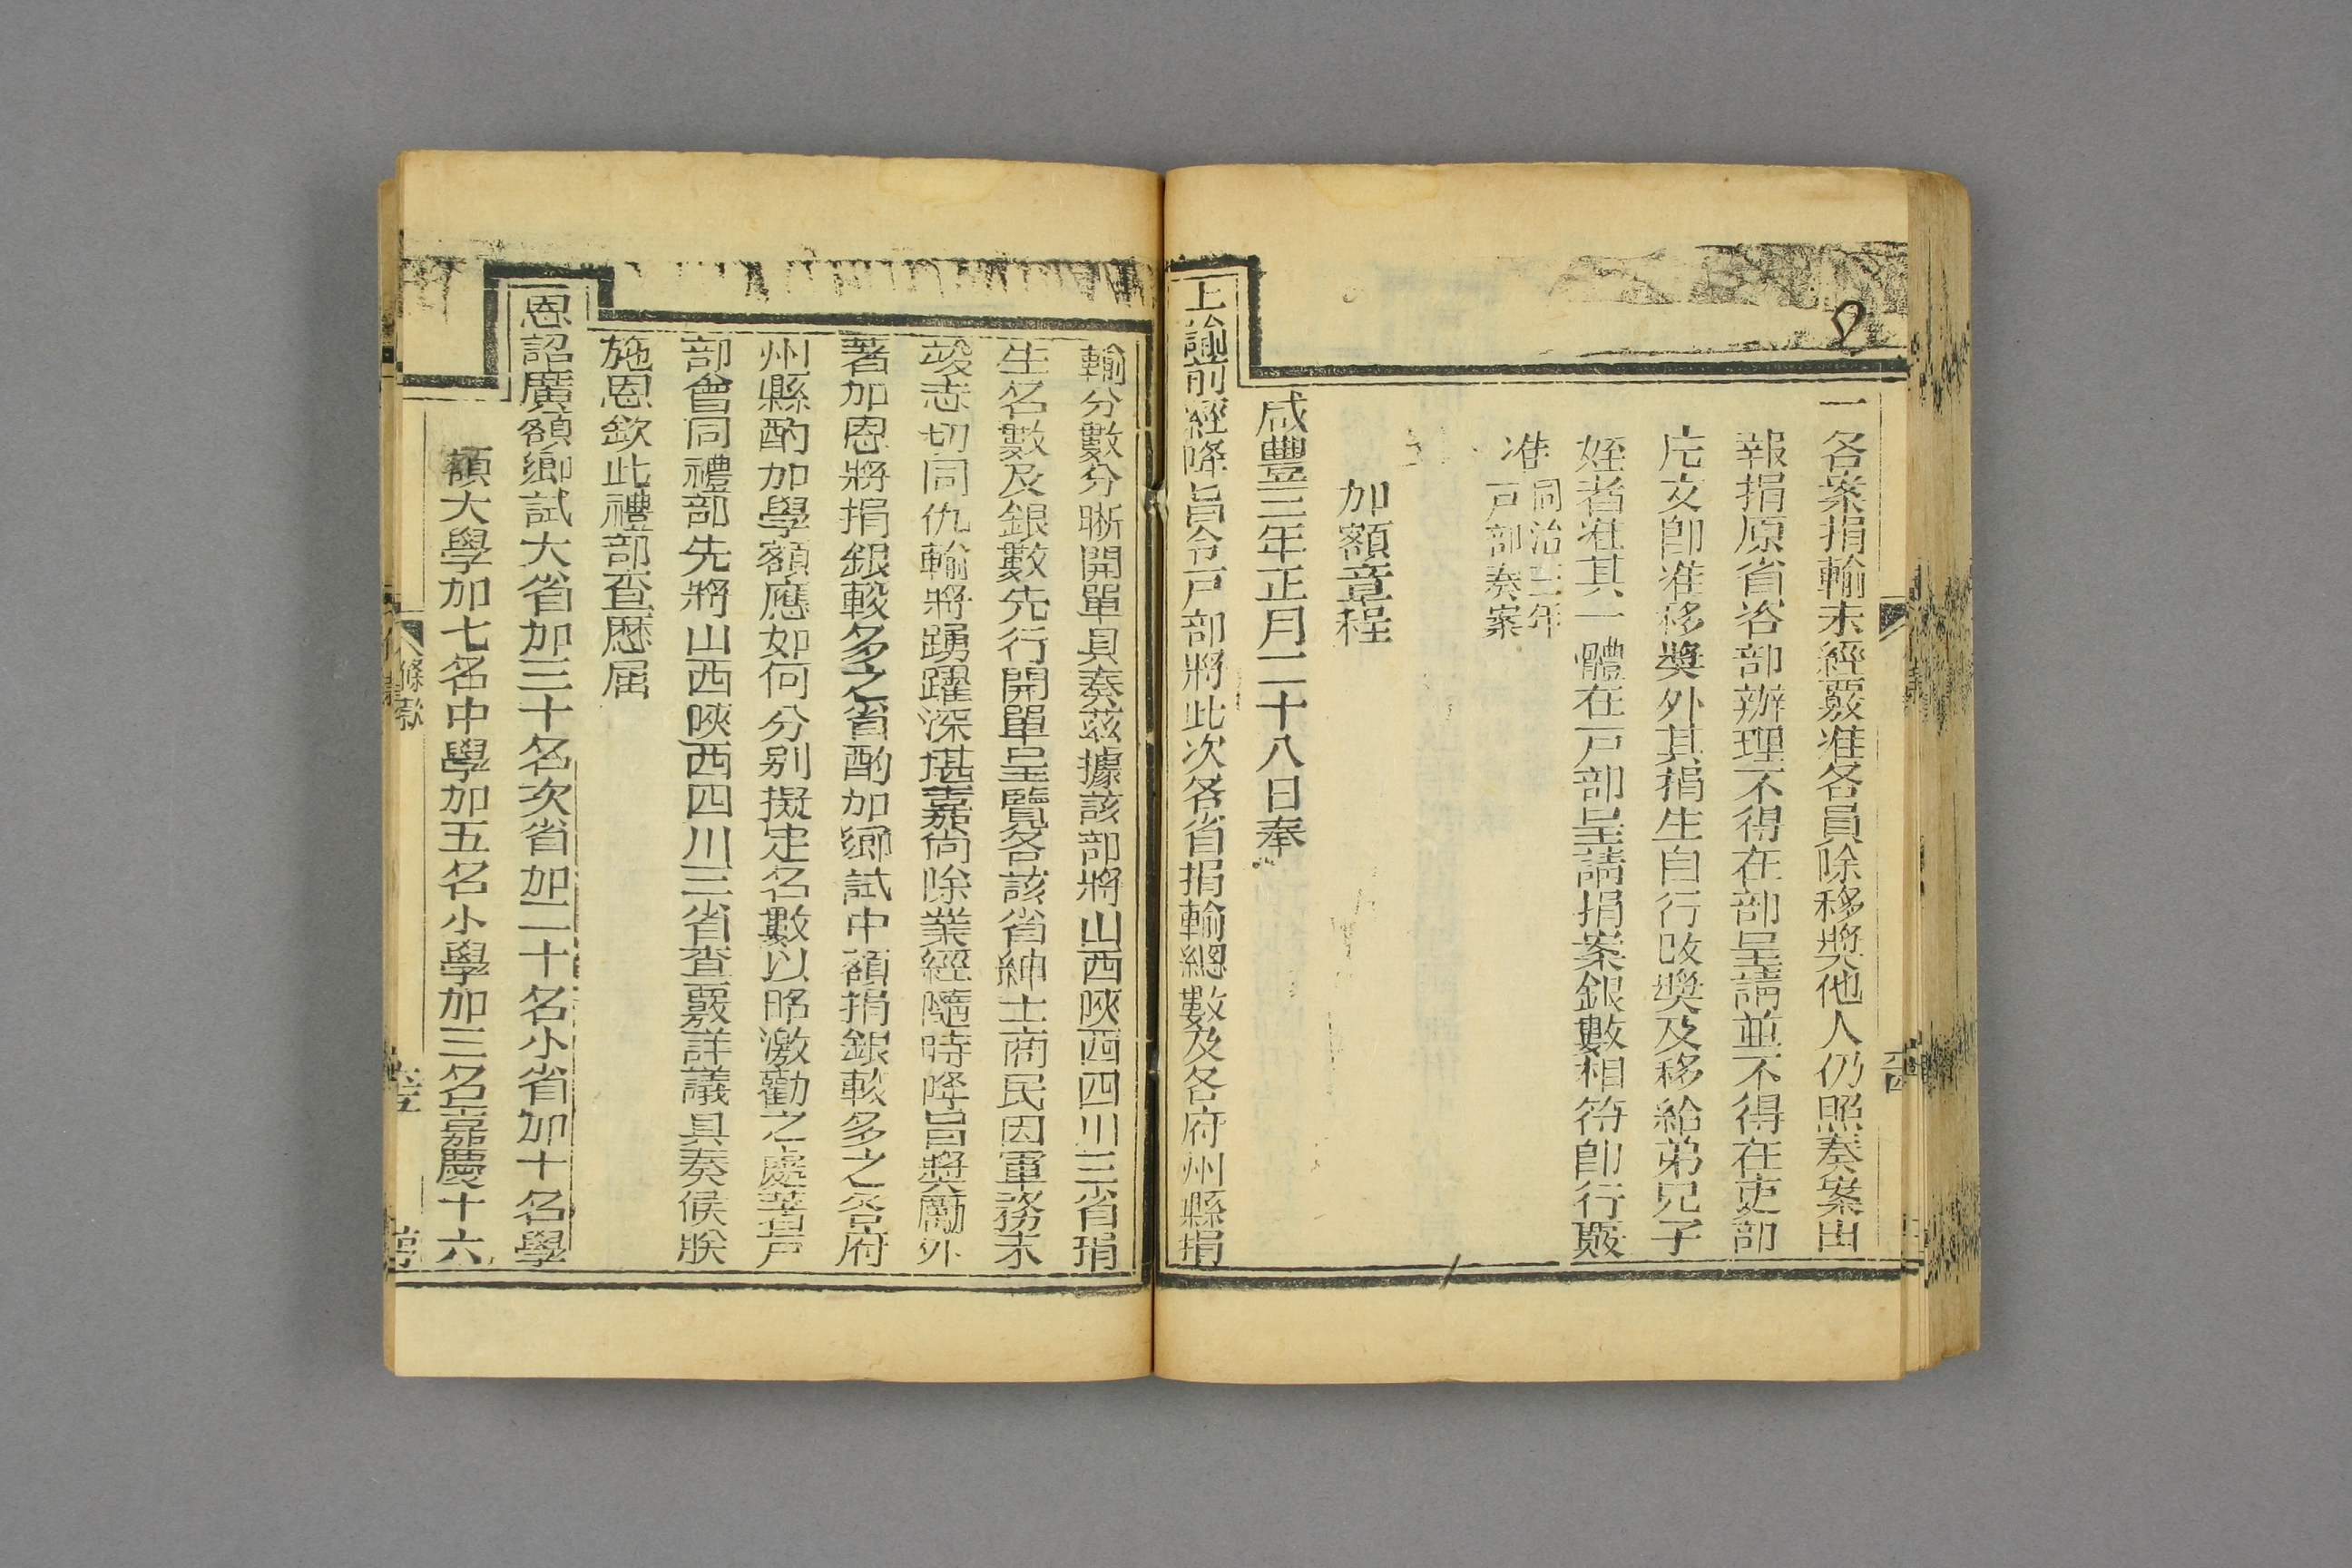 一各案捐輸未經覈准各員除移奬他人仍照奏案由
報捐原省咨部辦理不得在部呈請並不得在吏部
具文卽准移奬外其捐生自行改奬及移給弟兄子
姪者准其一體在戸部呈請捐案銀數相符卽行覈
准同治三年
戸部奏案
加額章程
咸豐三年正月二十八日奉
上諭前經降旨令戸部將此次各省捐輸總數及各府州縣捐
輸分數分晰開單具奏茲據該部將山西陝西四川三省捐
生名數及銀數先行開單呈覽各該省紳士商民因軍務未
竣志切同仇輸將踴躍深堪嘉尙除業經隨時降旨奬勵外
著加恩將捐銀較多之省酌加鄉試中額捐銀較多之各府
州縣酌加學額應如何分别擬定名數以昭激勸之處著戸
部會同禮部先將山西陝西四川三省查覈詳議具奏候朕
施恩欽此禮部查歷屆
恩詔廣額鄉試大省加三十名次省加二十名小省加十名學
額大學加七名中學加五名小學加三名嘉慶十六
條款